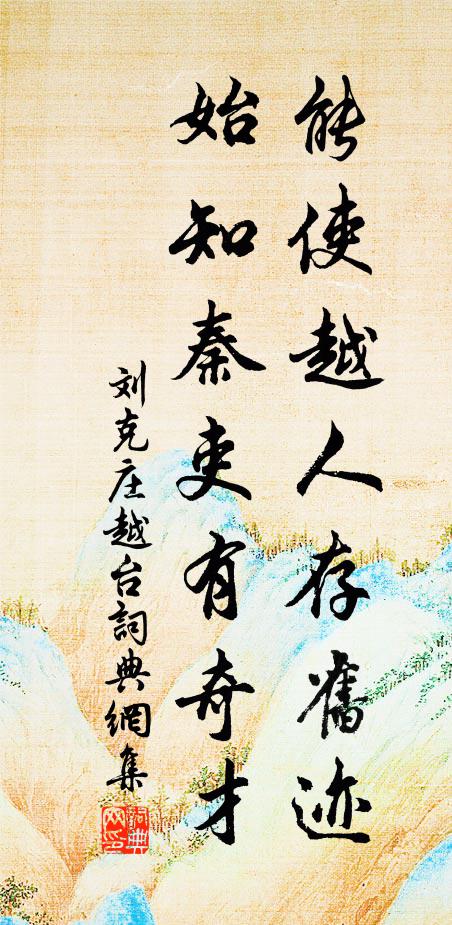 能使越人存旧迹
始知秦吏有奇才
刘克庄越台詞典網集
詞典